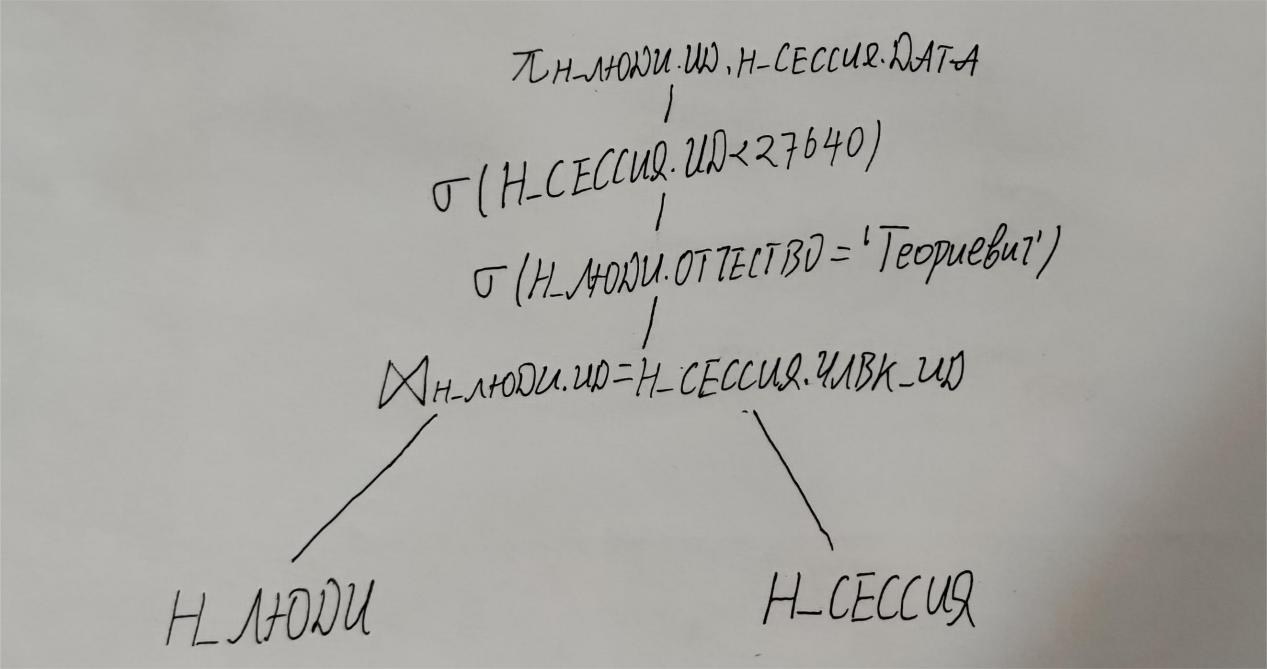 π Н_ЛЮДИ.ИД, Н_СЕССИЯ.ДАТА
σ (Н_СЕССИЯ.ИД<27640)
σ (Н_ЛЮДИ.ОТЧЕСТВО = 'Георгиевич')
⋈ Н_ЛЮДИ.ИД=Н_СЕССИЯ.ЧЛВК_ИД
Н_ЛЮДИ Н_СЕССИЯ